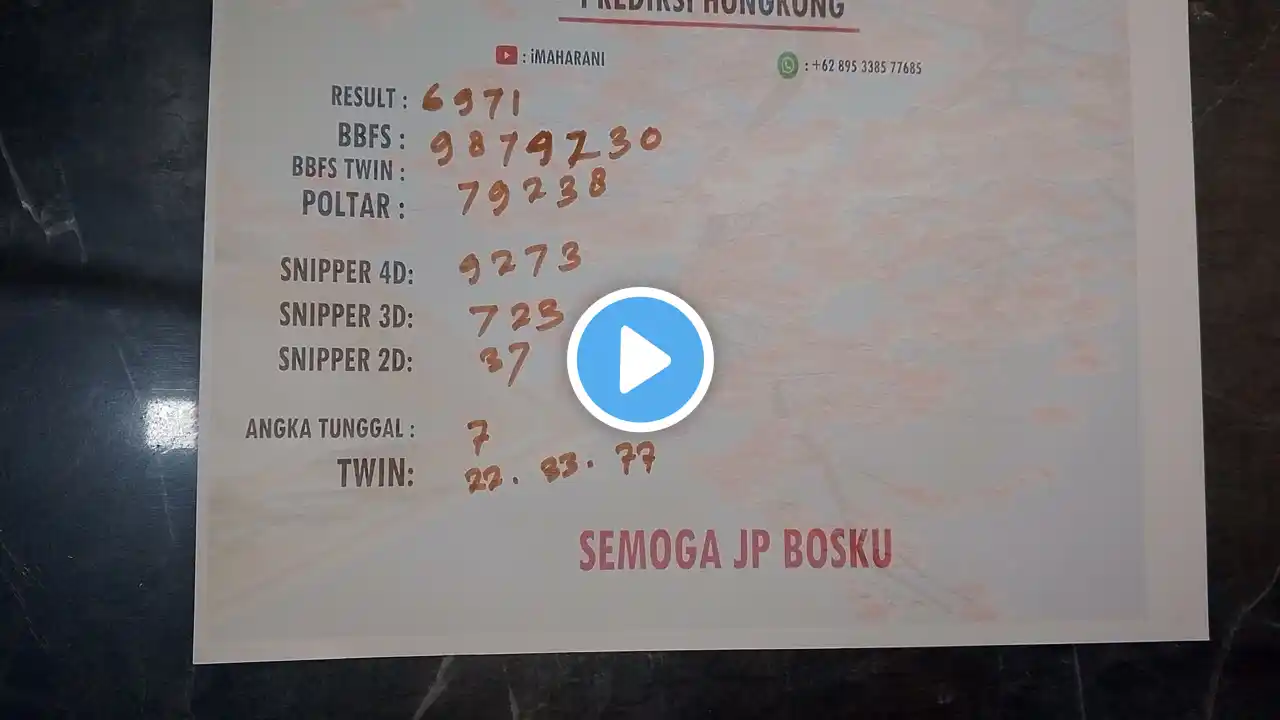 PREDIKSI HONGKONG
: iMAHARANI
: +62 895 3385 77685
RESULT : 6971
BBFS : 9879230
BBFS TWIN :
POLTAR : 79238
SNIPPER 4D: 9273
SNIPPER 3D: 723
SNIPPER 2D: 37
ANGKA TUNGGAL : 7
TWIN: 22 . 33 . 77
SEMOGA JP BOSKU